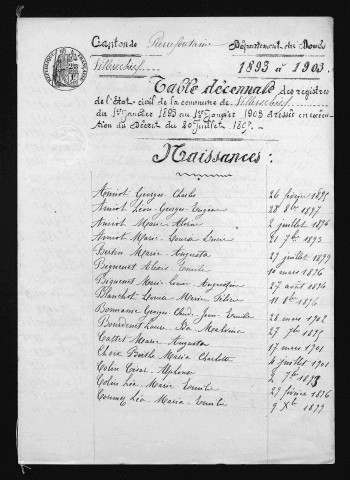 Canton de Pierrefontaine Département du Doubs
Villerschief 1893 à 1903.
Table décennale des registres
de l'Etat-civil de la commune de Villerschief
du 1er Janvier 1893 au 1er Janvier 1903 dressée en exécu-
tion du Décret du 20 juillet 1807.
Naissances :
Amiot Georges Charles 26 février 1895
Amiot Léon Georges Eugène 28 8bre 1897
Amiot Marie 2 juillet 1896
Amiot Marie Louise 21 7bre 1893
Bertin Marie Augusta 27 juillet 1899
Bignenet Emile 10 mars 1896
Bignenet Marie Augustine 27 août 1894
Blanchot Marie 11 1896
Georges Jean Emile 28 mars 1902
Louise 27 7bre 1895
Cattet Marie Augusta 17 mars 1901
Berthe Maria Charlotte 4 juillet 1901
Colin Alphonse 2 7bre 1893
Colin Léa Marie Emilie 27 février 1896
Léa Maria Emilie 9 Xbre 1899